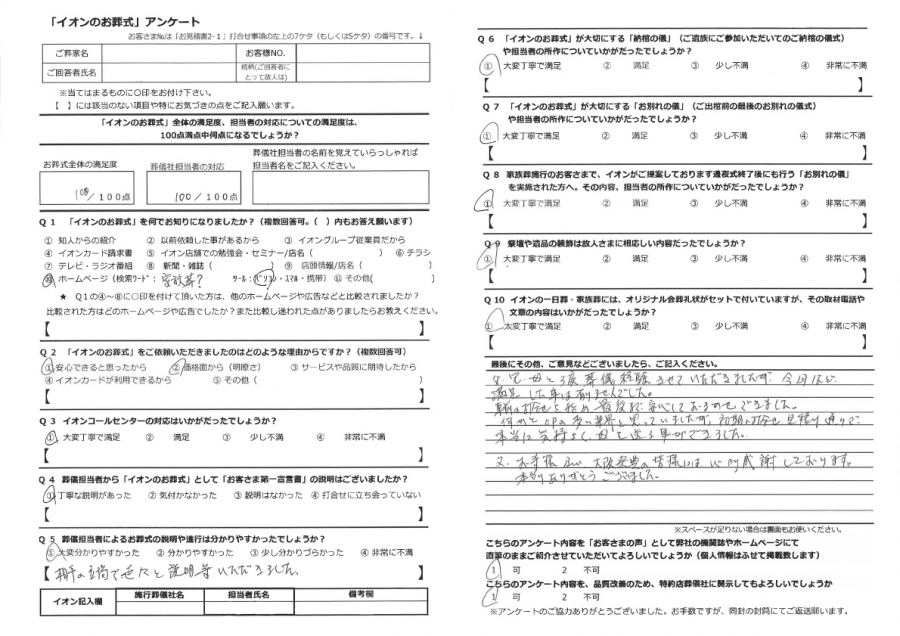 「イオンのお葬式」アンケート
お客さま№は「お見積書2-1」打合せ事項の左上の7ケタ（もしくは5ケタ）の番号です。↓
ご葬家名 お客様NO.
ご回答者氏名 続柄(ご回答者にとって故人は)
※当てはまるものに○印をお付け下さい。
【　】には該当のない項目や特にお気づきの点をご記入願います。
「イオンのお葬式」全体の満足度、担当者の対応についての満足度は、
100点満点中何点になるでしょうか？
お葬式全体の満足度 葬儀社担当者の対応 葬儀社担当者の名前を覚えていらっしゃれば
担当者名をご記入ください。
100/100点 100/100点
Q1 「イオンのお葬式」を何でお知りになりましたか？（複数回答可。（　）内もお答え願います）
① 知人からの紹介 ② 以前依頼した事があるから ③ イオングループ従業員だから
④ イオンカード請求書 ⑤ イオン店舗での勉強会・セミナー/店名（　） ⑥ チラシ
⑦ テレビ・ラジオ番組 ⑧ 新聞・雑誌（　） ⑨ 店頭情報/店名（　）
⑩ ホームページ（検索ワード：家族葬？ ツール：パソコン・スマホ・携帯）⑪ その他(　)
★ Q1の④～⑧に○印を付けて頂いた方は、他のホームページや広告などと比較されましたか？
比較された方はどのホームページや広告でしたか？また比較し迷われた点がありましたらお教えください。
【　】
Q2 「イオンのお葬式」をご依頼いただきましたのはどのような理由からですか？（複数回答可）
①安心できると思ったから ②価格面から（明瞭さ） ③ サービスや品質に期待したから
④イオンカードが利用できるから ⑤ その他（　）
【　】
Q3 イオンコールセンターの対応はいかがだったでしょうか？
① 大変丁寧で満足 ② 満足 ③ 少し不満 ④ 非常に不満
【　】
Q4 葬儀担当者から「イオンのお葬式」として「お客さま第一宣言書」の説明はございましたか？
①丁寧な説明があった ② 気付かなかった ③ 説明はなかった ④ 打合せに立ち会っていない
【　】
Q5 葬儀担当者によるお葬式の説明や進行は分かりやすかったでしょうか？
①大変分かりやすかった ② 分かりやすかった ③ 少し分かりづらかった ④ 非常に不満
【 相手の立場で色々と説明等いただきました。 】
イオン記入欄 施行葬儀社名 担当者氏名 備考欄
Q6 「イオンのお葬式」が大切にする「納棺の儀」（ご遺族にご参加いただいてのご納棺の儀式）
や担当者の所作についていかがだったでしょうか？
① 大変丁寧で満足 ② 満足 ③ 少し不満 ④ 非常に不満
【　】
Q7 「イオンのお葬式」が大切にする「お別れの儀」（ご出棺前の最後のお別れの儀式）
や担当者の所作についていかがだったでしょうか？
① 大変丁寧で満足 ② 満足 ③ 少し不満 ④ 非常に不満
【　】
Q8 家族葬施行のお客さまで、イオンがご提案しております通夜式終了後にも行う「お別れの儀」
を実施された方へ。その内容、担当者の所作についていかがだったでしょうか？
① 大変丁寧で満足 ② 満足 ③ 少し不満 ④ 非常に不満
【　】
Q9 祭壇や遺品の装飾は故人さまに相応しい内容だったでしょうか？
① 大変丁寧で満足 ② 満足 ③ 少し不満 ④ 非常に不満
【　】
Q10 イオンの一日葬・家族葬には、オリジナル会葬礼状がセットで付いていますが、その取材電話や
文章の内容はいかがだったでしょうか？
① 大変丁寧で満足 ② 満足 ③ 少し不満 ④ 非常に不満
【　】
最後にその他、ご意見などございましたら、ご記入ください。
父・兄・母と3度葬儀経験させていただきましたが、今回ほど
満足した事は有りませんでした。
最後まで安心しておまかせできました。
何かとの多い業界と思っていましたが、初期の打合せ見積り通りで、
本当に気持よく母を送る事ができました。
又、お手伝い の皆様には心より感謝しております。
本当にありがとうございました。
※スペースが足りない場合は裏面もお使いください。
こちらのアンケート内容を「お客さまの声」として弊社の機関誌やホームページにて
直筆のままご紹介させていただいてよろしいでしょうか（個人情報はふせて掲載致します）
1 可 2 不可
こちらのアンケート内容を、品質改善のため、特約店葬儀社に開示してもよろしいでしょうか
1 可 2 不可
※アンケートのご協力ありがとうございました。お手数ですが、同封の封筒にてご返送願います。